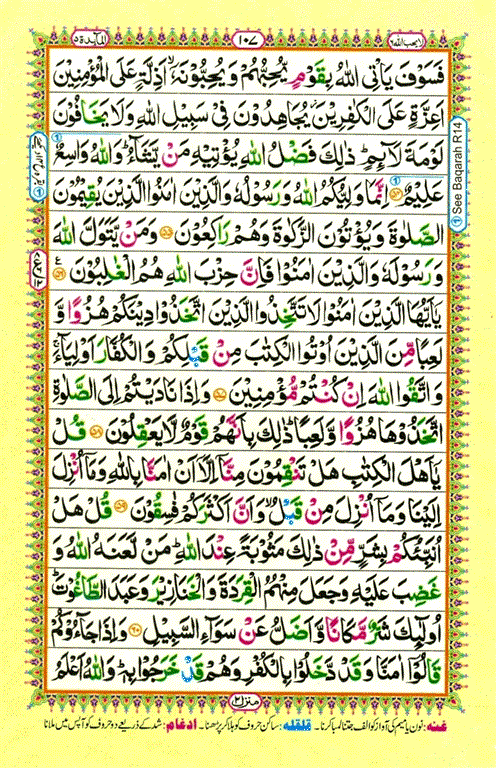 لا یحب الله ۶
۱۰۷
المآىدة ۵
فَسَوْفَ يَاْتِي اللّٰهُ بِقَوْمٍ يُّحِبُّهُمْ وَيُحِبُّوْنَهٗۤ ۙ اَذِلَّةٍ عَلَى الْمُؤْمِنِيْنَ
اَعِزَّةٍ عَلَى الْكٰفِرِيْنَ ؗ يُجَاهِدُوْنَ فِيْ سَبِيْلِ اللّٰهِ وَلَا يَخَافُوْنَ
لَوْمَةَ لَآىِٕمٍ ؕ ذٰلِكَ فَضْلُ اللّٰهِ يُؤْتِيْهِ مَنْ يَّشَآءُ ؕ وَاللّٰهُ وَاسِعٌ
عَلِيْمٌ ۝۵۴ اِنَّمَا وَلِيُّكُمُ اللّٰهُ وَرَسُوْلُهٗ وَالَّذِيْنَ اٰمَنُوا الَّذِيْنَ يُقِيْمُوْنَ
الصَّلٰوةَ وَيُؤْتُوْنَ الزَّكٰوةَ وَهُمْ رٰكِعُوْنَ ۝۵۵ وَمَنْ يَّتَوَلَّ اللّٰهَ
وَرَسُوْلَهٗ وَالَّذِيْنَ اٰمَنُوْا فَاِنَّ حِزْبَ اللّٰهِ هُمُ الْغٰلِبُوْنَ ۝۵۶
يٰۤاَيُّهَا الَّذِيْنَ اٰمَنُوْا لَا تَتَّخِذُوا الَّذِيْنَ اتَّخَذُوْا دِيْنَكُمْ هُزُوًا وَّ
لَعِبًا مِّنَ الَّذِيْنَ اُوْتُوا الْكِتٰبَ مِنْ قَبْلِكُمْ وَالْكُفَّارَ اَوْلِيَآءَ ۚ
وَاتَّقُوا اللّٰهَ اِنْ كُنْتُمْ مُّؤْمِنِيْنَ ۝۵۷ وَاِذَا نَادَيْتُمْ اِلَى الصَّلٰوةِ
اتَّخَذُوْهَا هُزُوًا وَّلَعِبًا ؕ ذٰلِكَ بِاَنَّهُمْ قَوْمٌ لَّا يَعْقِلُوْنَ ۝۵۸ قُلْ
يٰۤاَهْلَ الْكِتٰبِ هَلْ تَنْقِمُوْنَ مِنَّاۤ اِلَّاۤ اَنْ اٰمَنَّا بِاللّٰهِ وَمَاۤ اُنْزِلَ
اِلَيْنَا وَمَاۤ اُنْزِلَ مِنْ قَبْلُ ۙ وَاَنَّ اَكْثَرَكُمْ فٰسِقُوْنَ ۝۵۹ قُلْ هَلْ
اُنَبِّئُكُمْ بِشَرٍّ مِّنْ ذٰلِكَ مَثُوْبَةً عِنْدَ اللّٰهِ ؕ مَنْ لَّعَنَهُ اللّٰهُ وَ
غَضِبَ عَلَيْهِ وَجَعَلَ مِنْهُمُ الْقِرَدَةَ وَالْخَنَازِيْرَ وَعَبَدَ الطَّاغُوْتَ ؕ
اُولٰٓىِٕكَ شَرٌّ مَّكَانًا وَّاَضَلُّ عَنْ سَوَآءِ السَّبِيْلِ ۝۶۰ وَاِذَا جَآءُوْكُمْ
قَالُوْۤا اٰمَنَّا وَقَدْ دَّخَلُوْا بِالْكُفْرِ وَهُمْ قَدْ خَرَجُوْا بِهٖ ؕ وَاللّٰهُ اَعْلَمُ
① See Baqarah R14
منزل ۲
غنه: نون یا میم کی آواز کو الف جتنا لمبا کرنا۔ قلقله: ساکن حروف کو ہلا کر پڑھنا۔ ادغام: شد کے ذریعے دو حروف کو آپس میں ملانا